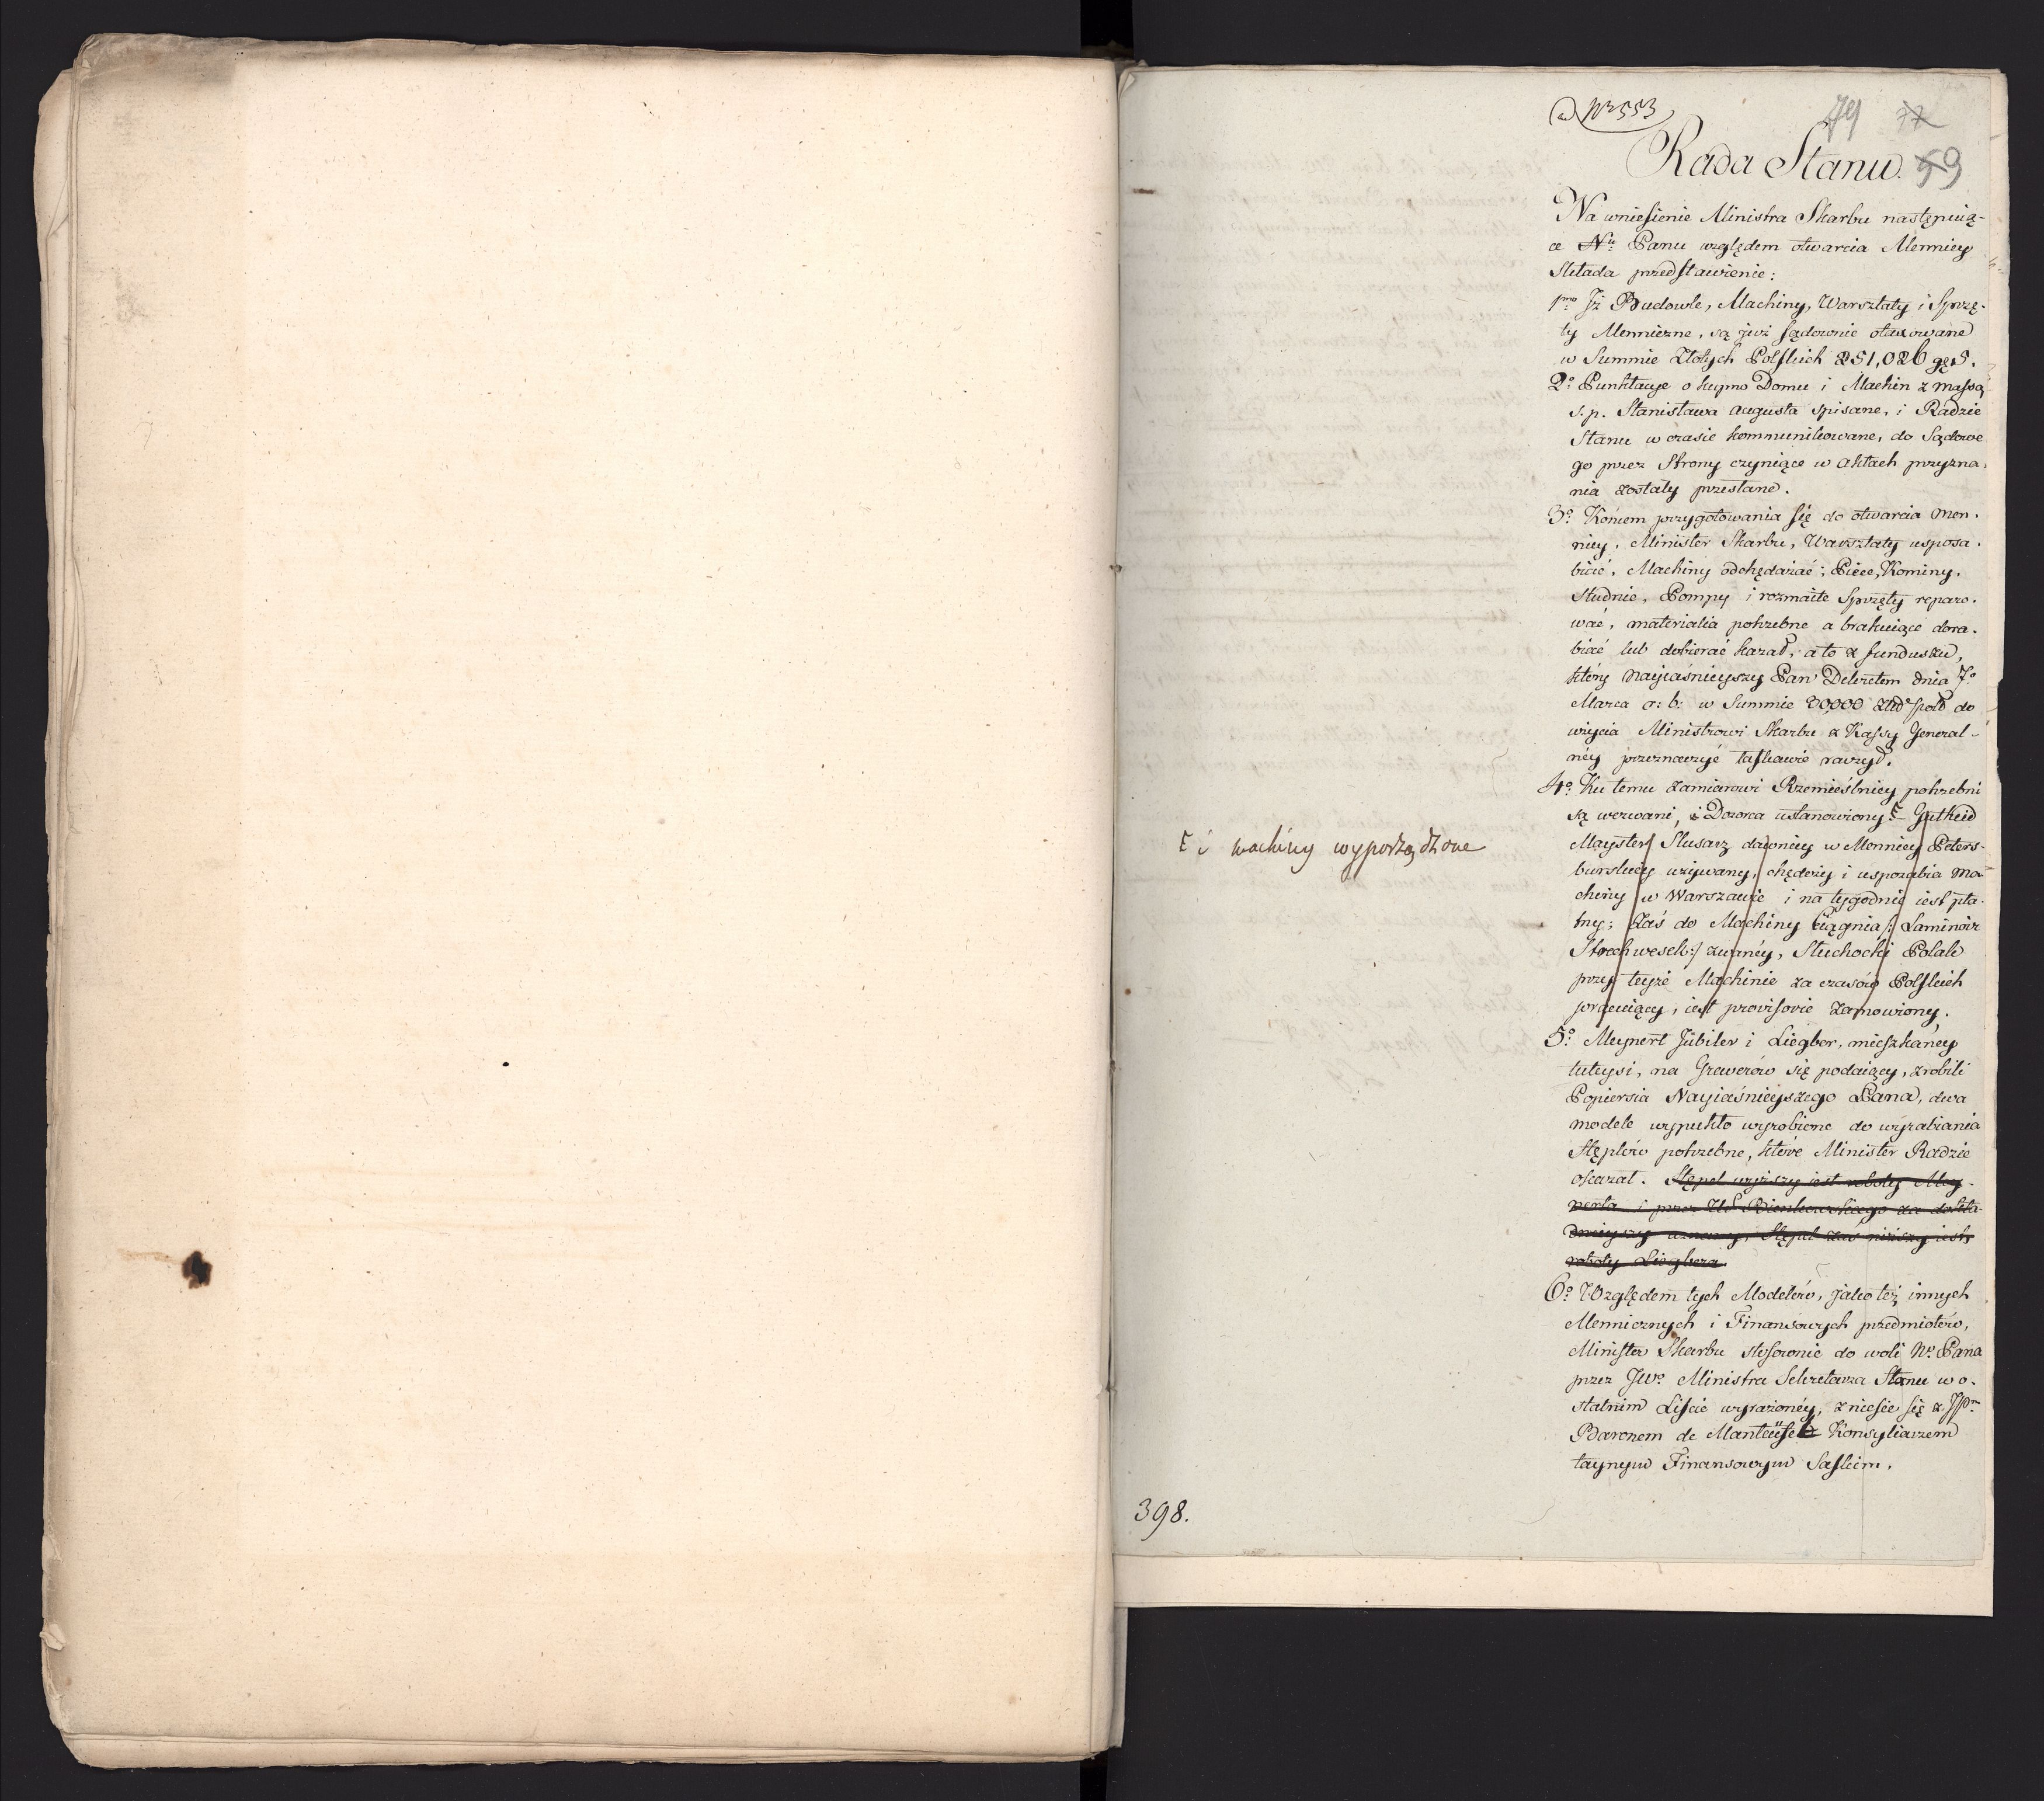 ad Nr 553
79
Rada Stanu. 59
Na wniesienie Ministra Skarbu następuią-
ce Nu: Panu względem otwarcia Mennicy
składa przedstawienie:
1mo Jż Budowle, Machiny, Warsztaty i Sprzę-
ty Mennicze, są już sądownie otaxowane
w Summie Złotych Polskich 251,026 gr 5.
2o: Punktacye o kupno Domu i Machin z massą
s. p. Stanisława Augusta spisane, i Radzie
Stanu w czasie kommunikowane, do Sądowe
go przez Strony czyniące w aktach przyzna-
nia zostały przesłane.
3o: Końcem przygotowania się do otwarcia Men-
nicy, Minister Skarbu, Warsztaty usposa-
bić, Machiny odchędażać, Piece, Kominy,
Studnie, Pompy i rozmaite Sprzęty reparo-
wać, materialia potrzebne a brakuiące dora-
biać lub dobierać kazał, a to z funduszu,
który Nayiaśnieyszy Pan Dekretem dnia 7o
Marca r: b: w Summie 20,000 Złp do
użycia Ministrowi Skarbu z Kassy General-
néy przeznaczyć łaskawie raczył.
4o: Ku temu zamiarowi Rzemieślnicy potrzebni
są wezwani, i Dozorca ustanowiony. Gutheid
Mayster Slusarz dawniey w Mennicy Peters-
burskiey używany, chędoży i usposabia Ma-
chiny w Warszawie i na tygodnie iest pła-
tny; Zaś do Machiny Ciągnia /: Laminoir
Streckwesek :/ zwanéy, Stuchocki Polak
przy teyże Machinie za czasów Polskich
pracuiący, iest provisorie zamowiony.
i machiny wyporządzone
5o: Meynert Jubiler i Liegber, mieszkańcy
tuteysi, na Grawerów się podaiący, zrobili
Popiersia Nayiaśnieyszego Pana, dwa
modele wypukło wyrobione do wyrabiania
stęplów potrzebne, które Minister Radzie
okazał. Stępel wyższy iest roboty Mey-
nerta i przez W. Bienkowskiego za dokła-
dnieyszy uznany, Stępel zaś niższy iest
roboty Liegbera.
6o: Względem tych Modelów, jako też innych
Mennicznych i Finansowych przedmiotów,
Minister Skarbu stosownie do woli No Pana
przez JWo Ministra Sekretarza Stanu w o-
statnim Liście wyrażonéy, zniesie się z JPm
Baronem de Manteüfel Konsyliarzem
taynym Finansowym Saskim.
398.